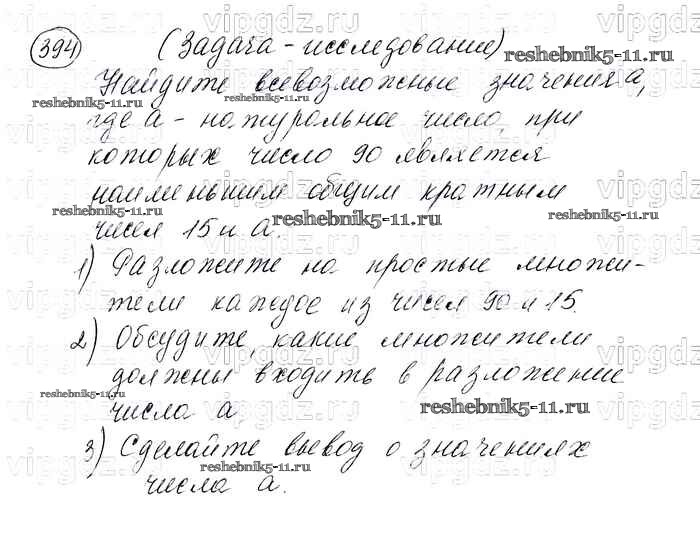 394 (Задача - исследование)
Найдите всевозможные значения а,
где а - натуральное число, при
которых число 90 является
наименьшим общим кратным
чисел 15 и а.
1) Разложите на простые множи-
тели каждое из чисел 90 и 15.
2) Обсудите, какие множители
должны входить в разложение
числа а.
3) Сделайте вывод о значениях
числа а.
reshebnik5-11.ru
reshebnik5-11.ru
reshebnik5-11.ru
reshebnik5-11.ru
reshebnik5-11.ru
reshebnik5-11.ru
reshebnik5-11.ru
reshebnik5-11.ru
vipgdz.ru